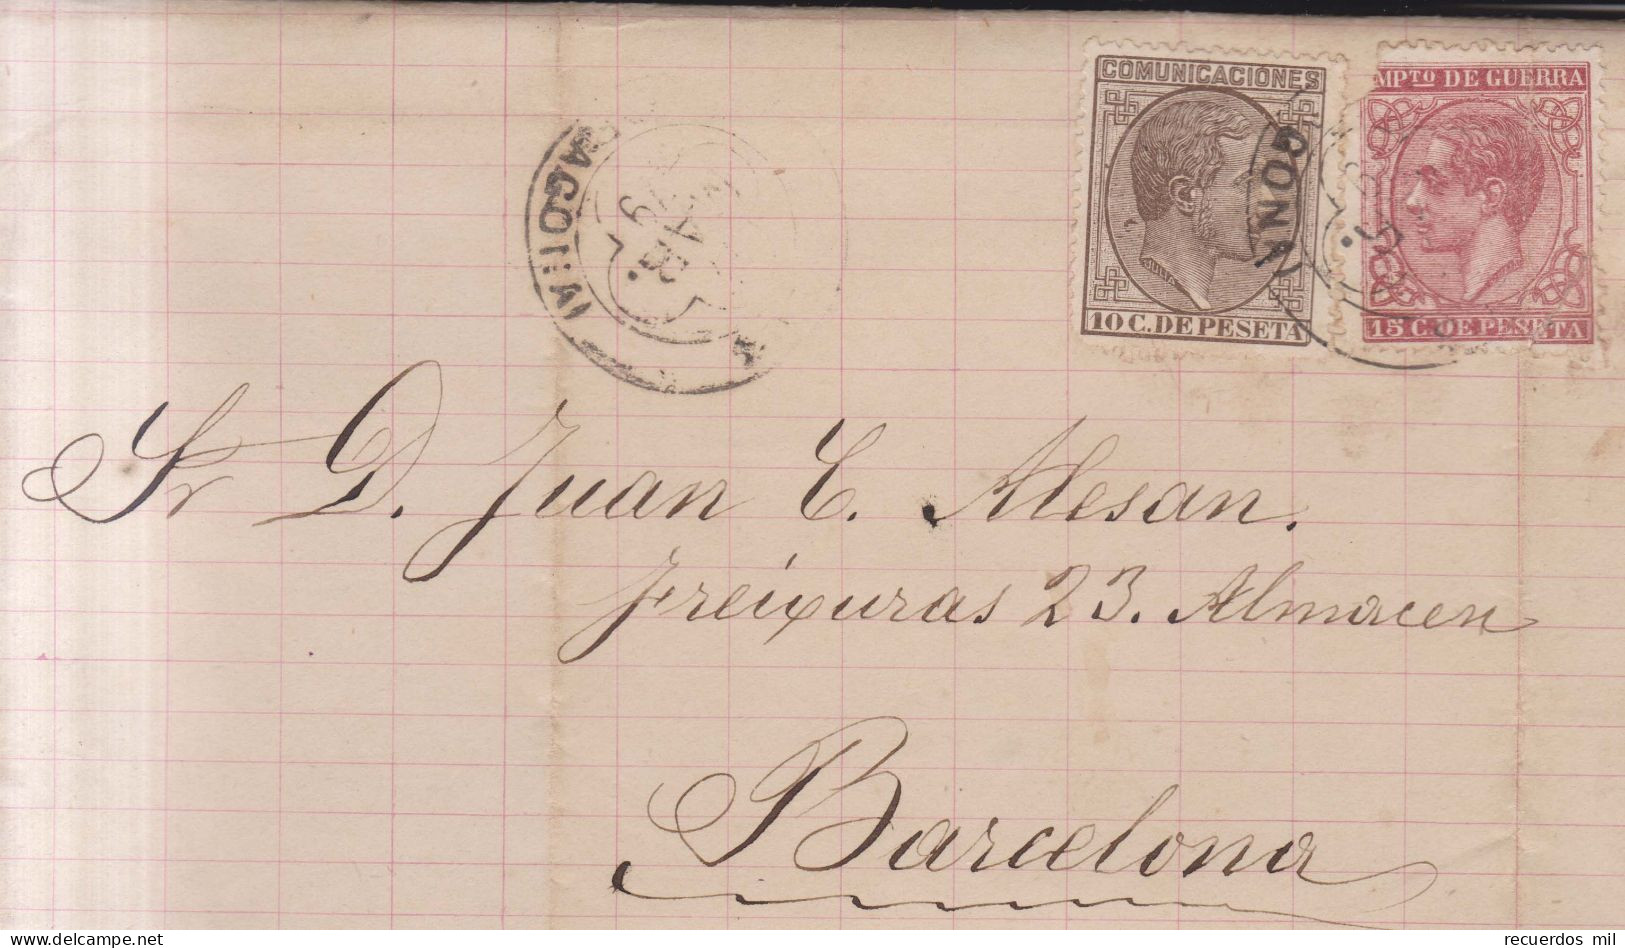 COMUNICACIONES
JULIA
10 C. DE PESETA
MPTO DE GUERRA
15 C. DE PESETA
GONA
Sr D. Juan C. Alesan.
Freixuras 23. Almacen
Barcelona
recuerdos mil